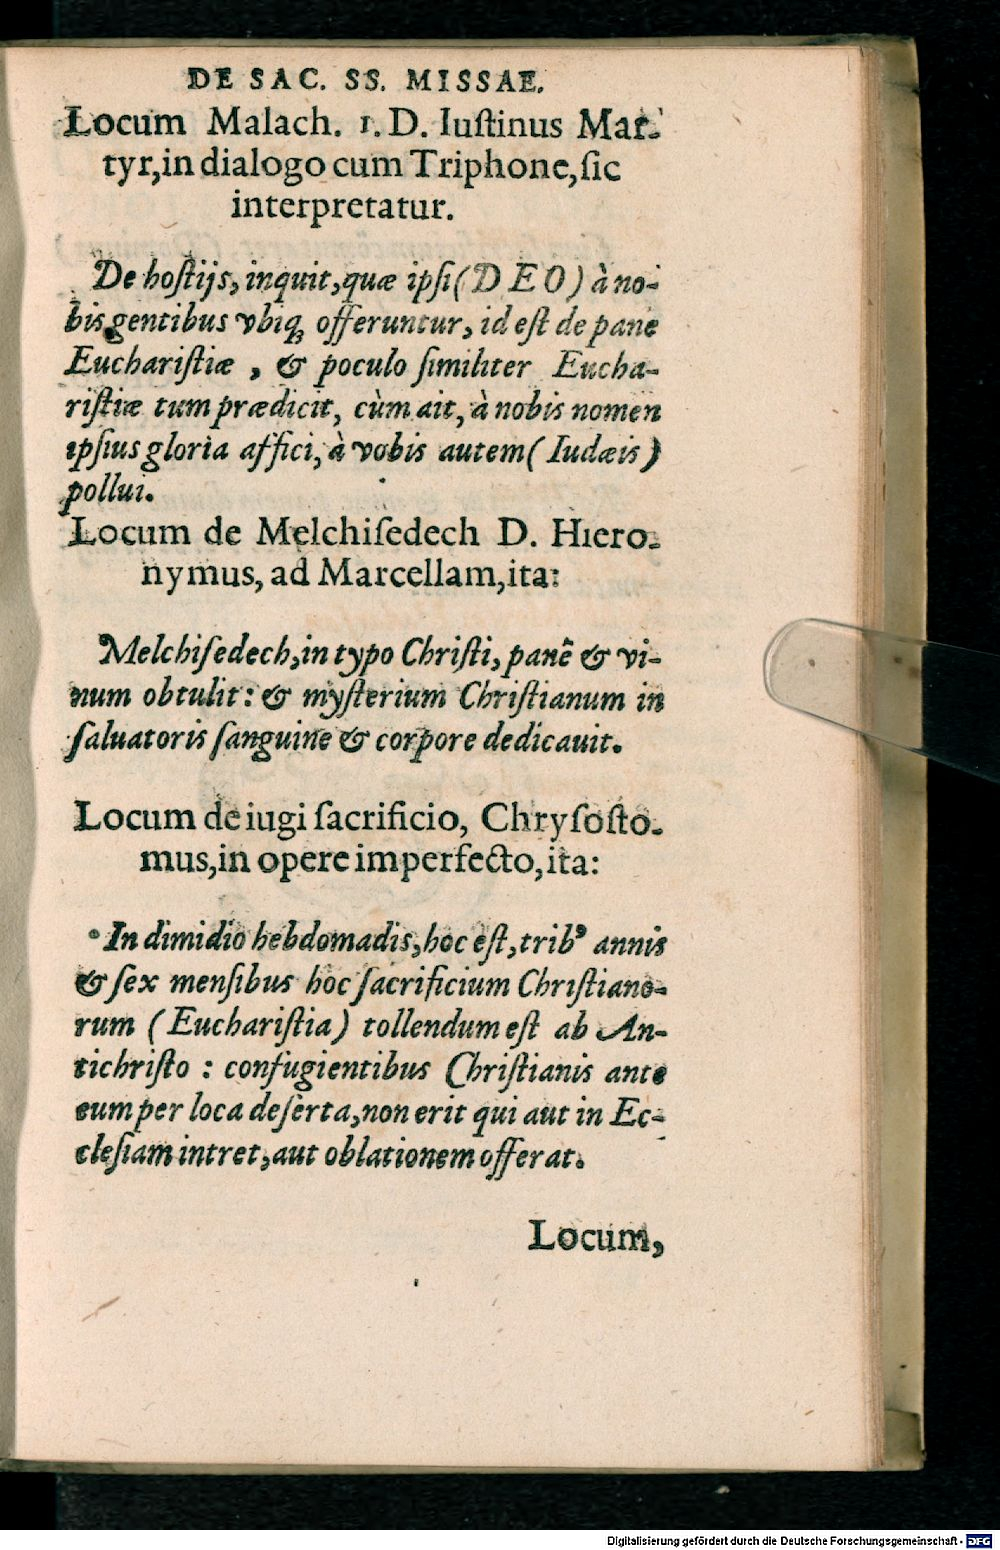 DE SAC. SS. MISSAE.
Locum Malach. 1. D. Iuſtinus Mar-
tyr,in dialogo cum Triphone,ſic
interpretatur.
De hoſtijs, inquit,quæ ipſi (DEO) à no-
bis gentibus vbiqꝫ offeruntur, id eſt de pane
Euchariſtiæ , & poculo ſimiliter Eucha-
riſtiæ tum prædicit, cùm ait, à nobis nomen
ipſius gloria affici, à vobis autem (Iudæis)
pollui.
Locum de Melchiſedech D. Hiero-
nymus, ad Marcellam,ita:
Melchiſedech,in typo Chriſti, panē & vi-
num obtulit: & myſterium Chriſtianum in
ſaluatoris ſanguine & corpore dedicauit.
Locum de iugi ſacrificio, Chryſoſto-
mus,in opere imperfecto,ita:
In dimidio hebdomadis,hoc eſt,tribꝰ annis
& ſex menſibus hoc ſacrificium Chriſtiano-
rum (Euchariſtia) tollendum eſt ab An-
tichriſto : confugientibus Chriſtianis ante
eum per loca deſerta,non erit qui aut in Ec-
cleſiam intret,aut oblationem offerat.
Locum,
Digitalisierung gefördert durch die Deutsche Forschungsgemeinschaft - DFG